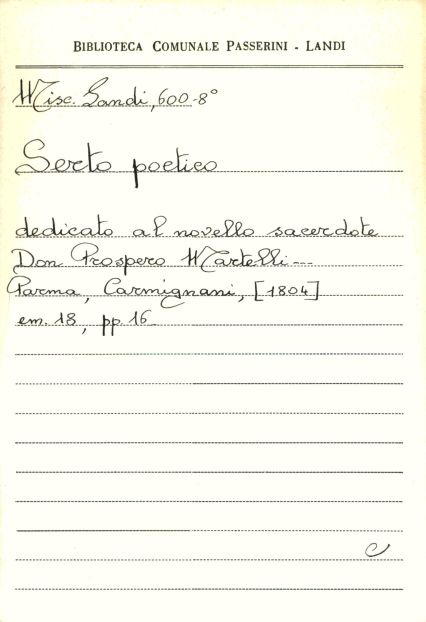 BIBLIOTECA COMUNALE PASSERINI - LANDI
Misc. Landi, 600-8°
Serto poetico
dedicato al novello sacerdote
Don Prospero Martelli---
Parma, Carmignani, [1804]
cm. 18, pp. 16
C